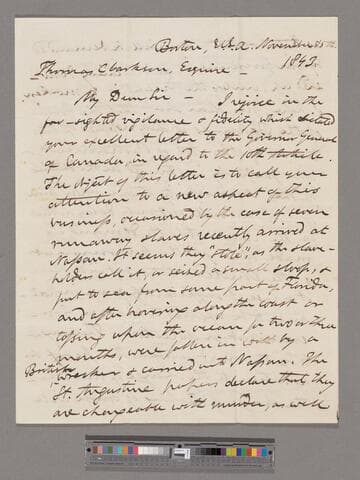 Boston, U.S.A. November
1843.
Thomas Clarkson, Esquire -
My Dear Sir - I rejoice in the
far-sighted vigilance & fidelity which dictated
your excellent letter to the Governor General
of Canada, in regard to the 10th Article.
The object of this letter is to call your
attention to a new aspect of this
business, occasioned by the case of seven
runaway slaves recently arrived at
Nassau. It seems they "stole", as the slave-
holders call it, or seized a small sloop, &
put to sea from some port of Florida,
and after hovering along the coast or
tossing upon the ocean for two or three
months, were fallen in with by a
British
wrecker & carried into Nassau. The
St. Augustine papers declare that they
are chargeable with murder, as well